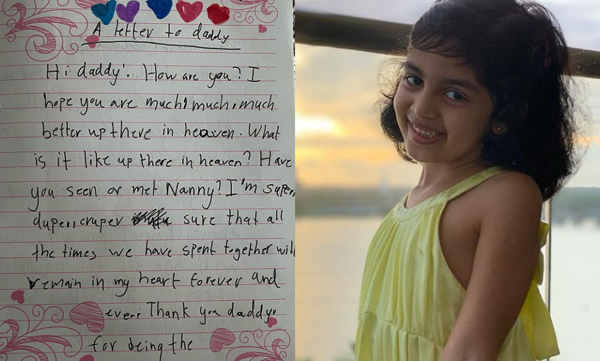 A letter to daddy
Hi daddy. How are you? I
hope you are much, much, much
better up there in heaven. What
is it like up there in heaven? Have
you seen or met Nanny? I'm super,
duper, cruper sure that all
the times we have spent together will
remain in my heart forever and
ever. Thank you daddy
for being the